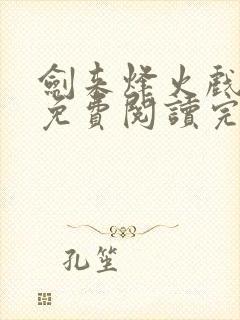 劍來烽火戲
免費閱讀完
孔笙